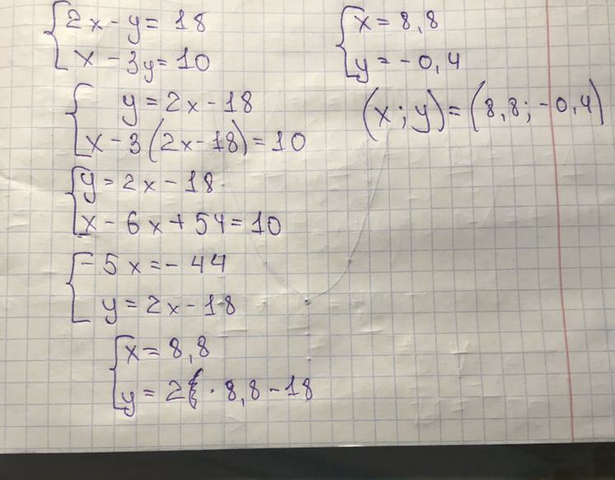 2x - y = 18
x - 3y = 10
y = 2x - 18
x - 3(2x - 18) = 10
y = 2x - 18
x - 6x + 54 = 10
- 5x = - 44
y = 2x - 18
x = 8,8
y = 2 · 8,8 - 18
x = 8,8
y = - 0,4
(x; y) = (8,8; -0,4)